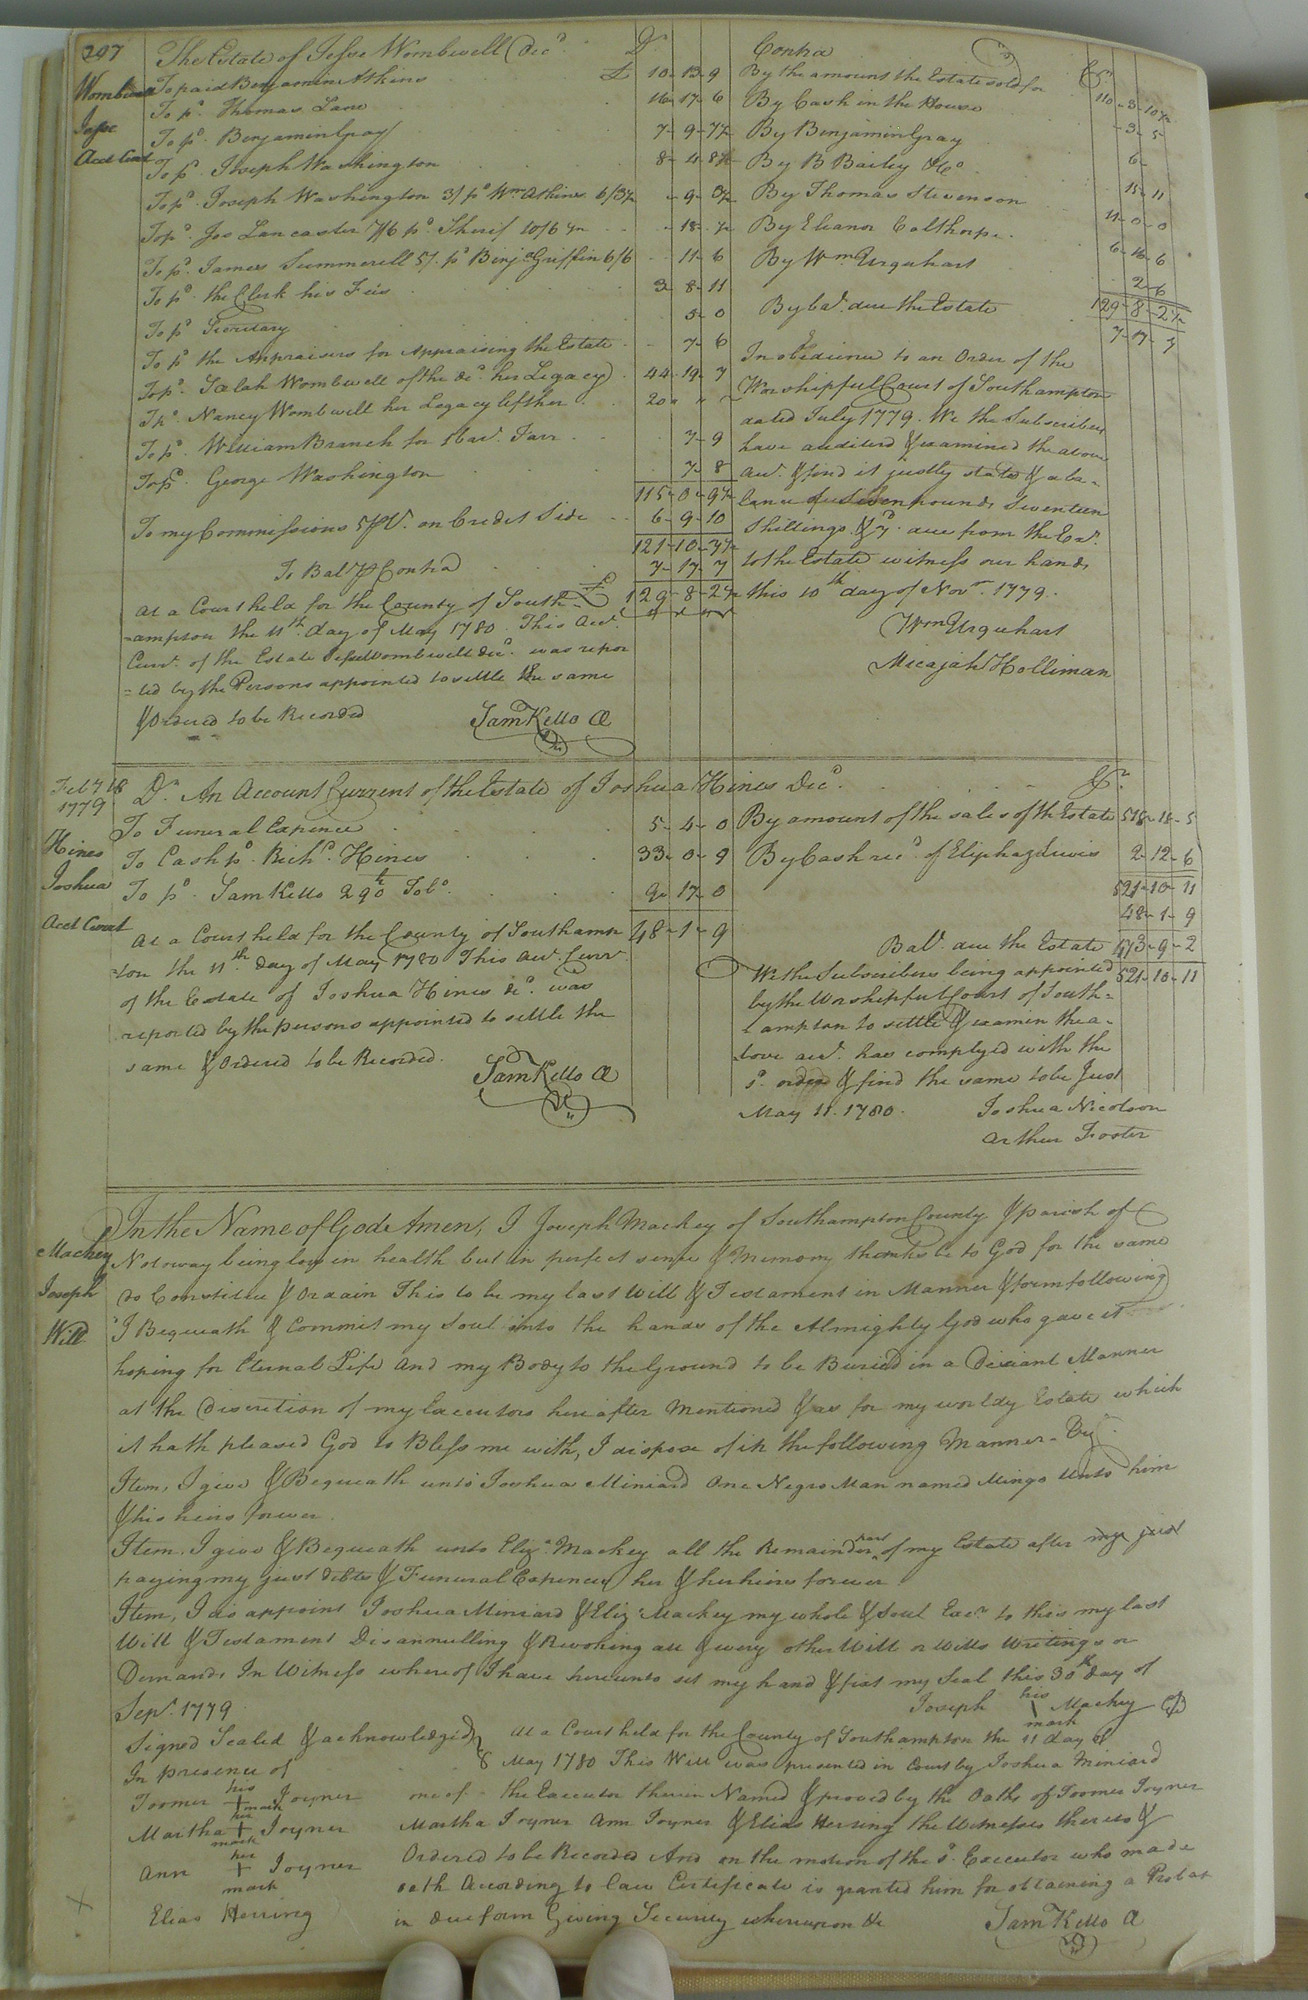 297
The Estate of Jesse Wombwell Decd. Dr
Wombwell
Jesse
Acct Curt
To paid Benjamin Atkins £ 10-13-9
To pd. Thomas Lane 16-17-6
To pd. Benjamin Gray 7-9-7½
To pd. Joseph Washington 8-4-8½
To pd. Joseph Washington 3/ pd. Wm Atkins 6/3½ - 9-3½
To pd. Jos Lancaster 7/6 pd. Sherif 10/6½ - 18-½
To pd. James Summerell 5/ pd Benja Griffin 6/6 - 11-6
To pd. the Clerk his Fees 3-8-11
To pd Secretary 5-0
To pd the Appraisers for Appraising the Estate 7-6
To pd. Wombwell of the decd. her Legacy 44-19-7
To pd. Nancy Wombwell her Legacy left her 20 " "
To pd. William Branch for 1 bar. Tarr 7-9
To pd. George Washington 7-8
115-0-9½
To my Commissions 5 pCt. on Credit Side 6-9-10
121-10-7½
To Bal pr Contra 7-17-7
£ 129-8-2½
At a Court held for the County of South-
=ampton the 11th. day of May 1780. This Acct.
Curt. of the Estate Jesse Wombwell decd. was repor
=ted by the Persons appointed to settle the same
& Ordered to be Recorded Sam Kello Cl
Contra Cr
By the amount the Estate sold for 110-3-10½
By Cash in the House -3-5
By Benjamin Gray 6-
By B Bailey &c 15-11
By Thomas Stevenson 11-0-0
By Eleanor Calthorpe 6-16-6
By Wm Urquhart 2-6
129-8-2½
By bal. due the Estate 7-17-7
In obedience to an Order of the
Worshipful Court of Southampton
dated July 1779. We the Subscribers
have audited & examined the above
acct. & find it justly stated & a ba-
lance of Seven pounds Seventeen
Shillings & 7d. due from the Exr.
to the Estate witness our hands
this 10th day of Novr. 1779.
Wm Urquhart
Micajah Holliman
Feby 18
1779
Hines
Joshua
Acct Curat
Dr. An Account Current of the Estate of Joshua Hines Decd. Cr.
To Funeral Expence 5-4-0
To Cash pd. Richd. Hines 33-0-9
To pd. Sam Kello 290 lb Tobo. 9-17-0
48-1-9
At a Court held for the County of Southamp
=ton the 11th day of May 1780 This Acct. Curr
of the Estate of Joshua Hines decd. was
reported by the persons appointed to settle the
same & Ordered to be Recorded.
Sam Kello Cl
By amount of the sales of the Estate 518-18-5
By Cash recd. of Eliphaz Lewis 2-12-6
521-10-11
48-1-9
Bal. due the Estate 473-9-2
521-10-11
We the Subscribers being appointed
by the Worshipful Court of South=
ampton to settle & examin the a-
bove acct. has complyed with the
sd. order & find the same to be Just
May 11. 1780. Joshua Nicolson
Arthur Foster
Mackey
Joseph
Will
In the Name of God Amen, I Joseph Mackey of Southampton County & parish of
Notoway being low in health but in perfect sense & Memory thanks be to God for the same
do Constitue & Ordain This to be my last Will & Testament in Manner & form following
I Bequeath & Commit my Soul into the hands of the Almighty God who gave it
hoping for Eternal Life And my Body to the Ground to be Buried in a Deciant Manner
at the Discretion of my Executors hereafter Mentioned & as for my worldy Estate which
it hath pleased God to Bless me with, I dispose of in the following Manner-
Item, I give & Bequeath unto Joshua Miniard One Negro Man named Mingo Unto him
& his heirs forever.
Item. I give & Bequeath unto Eliza. Mackey all the Remainder part of my Estate after my just
paying my just debts & Funeral Expences her & her heirs forever
Item, I do appoint Joshua Miniard & Eliza: Mackey my whole & Soul Exrs to this my last
Will & Testament Disannulling & Revoking all & every other Will or Wills Writings or
Demands In Witness whereof I have hereunto set my hand & fixt my Seal this 30th day of
Sepr. 1779 Joseph his mark Mackey
Signed Sealed & acknowledged
In presence of
Toomer his + mark Joyner
Martha her + mark Joyner
Ann her + mark Joyner
Elias Herring
At a Court held for the County of Southampton the 11 day of
May 1780 This Will was presented in Court by Joshua Miniard
one of the Executor therein Named & proved by the Oaths of Toomer Joyner
Martha Joyner Ann Joyner & Elias Herring the Witnesses thereto &
Ordered to be Recorded And on the motion of the sd. Executor who made
oath According to Law Certificate is granted him for obtaining a Probat
in due form Giving Security whereupon &c Sam Kello Cl